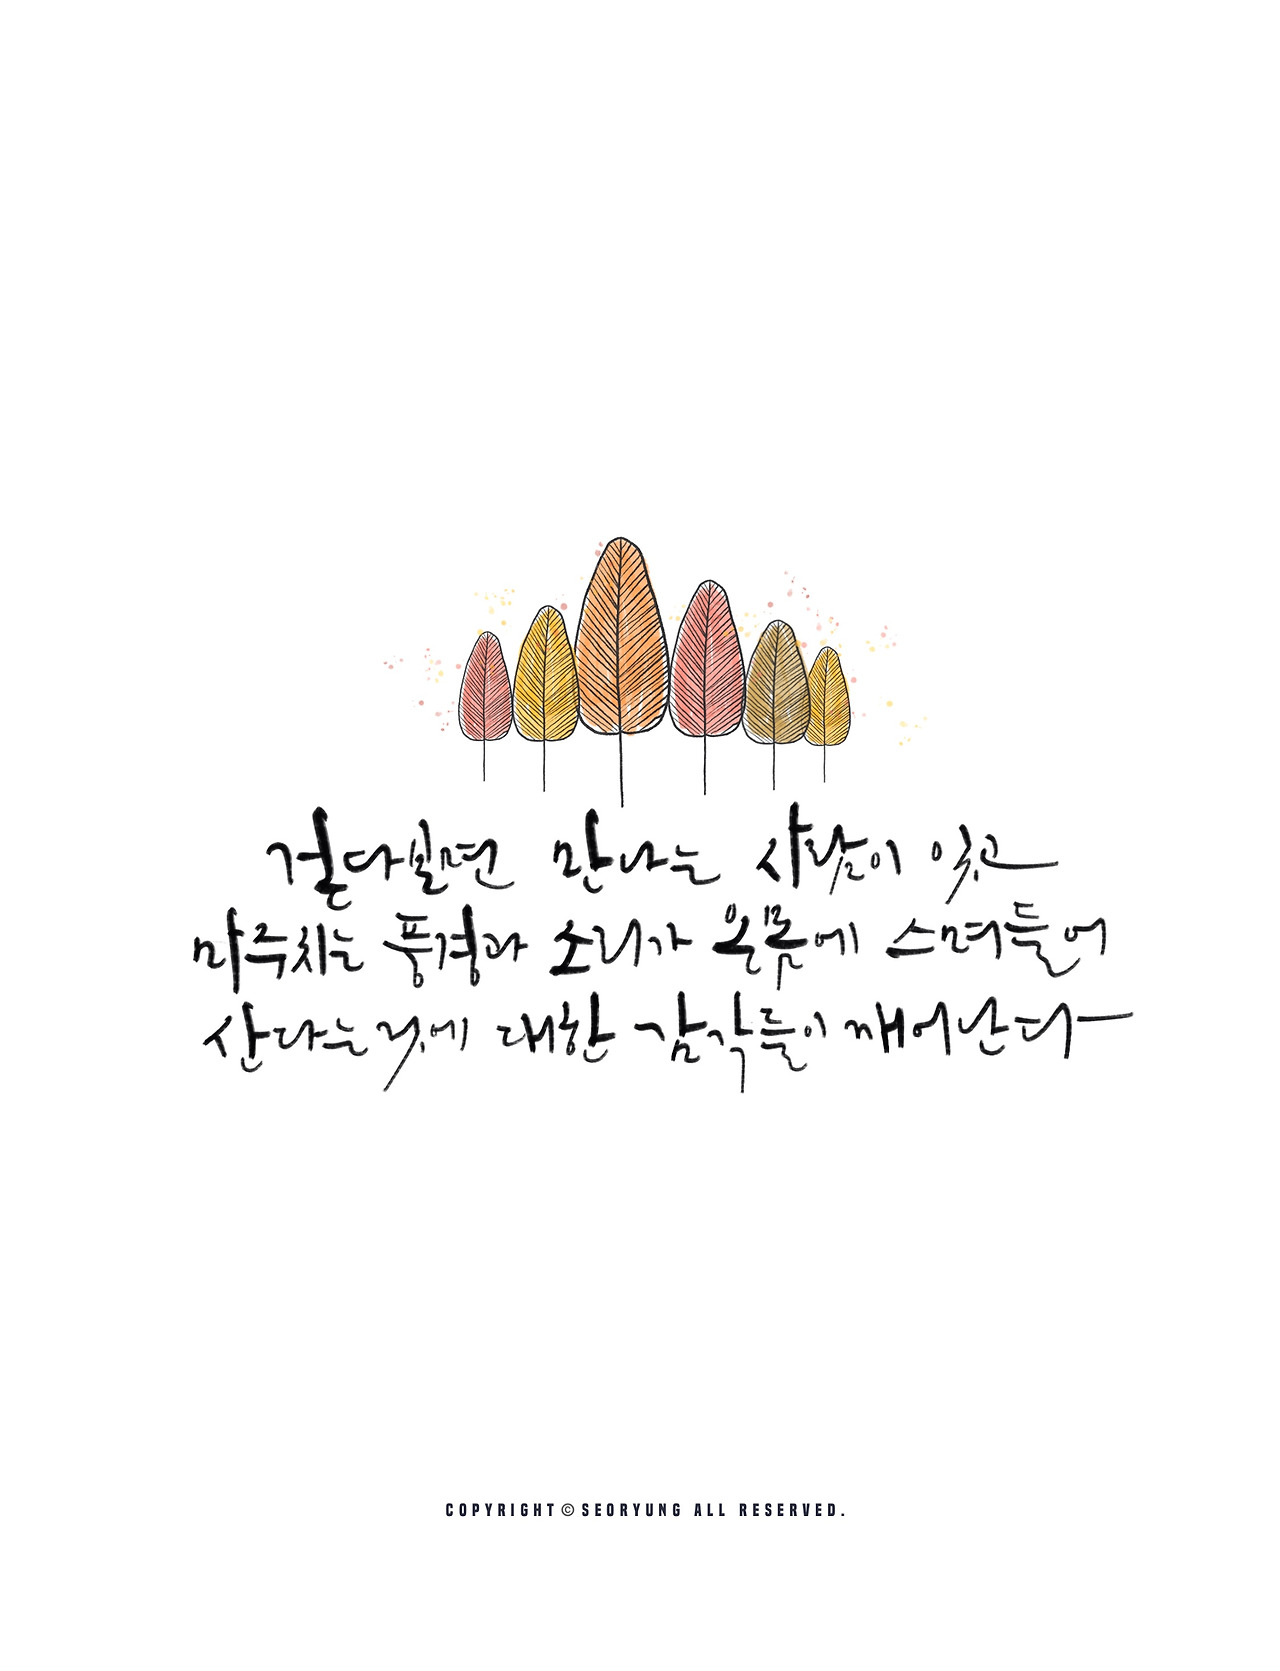 걷다보면 만나는 사람이 있고
마주치는 풍경과 소리가 온몸에 스며들어
산다는 것에 대한 감각들이 깨어난다
COPYRIGHT © SEORYUNG ALL RESERVED.